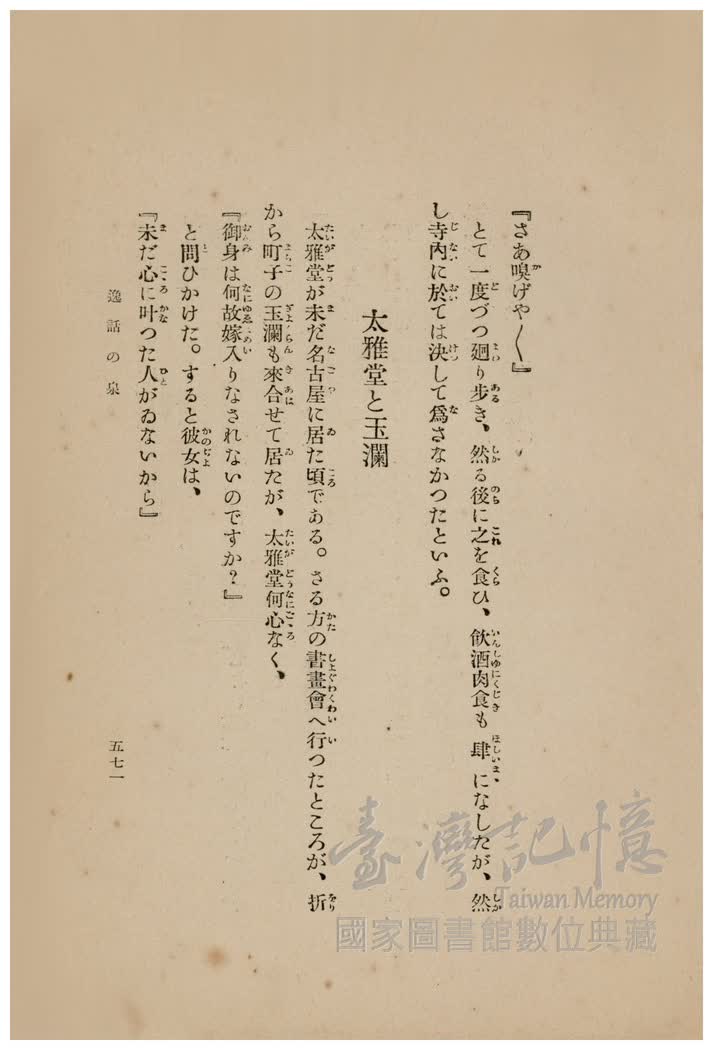 『さあ嗅げや〳〵』
とて一度づつ廻り歩き、然る後に之を食ひ、飮酒肉食も肆になしたが、然
し寺內に於ては決して爲さなかつたといふ。
太雅堂と玉瀾
太雅堂が未だ名古屋に居た頃である。さる方の書畫會へ行つたところが、折
から町子の玉瀾も來合せて居たが、太雅堂何心なく、
『御身は何故嫁入りなされないのですか？』
と問ひかけた。すると彼女は、
『未だ心に叶つた人がゐないから』
逸話の泉
五七一
臺灣記憶
Taiwan Memory
國家圖書館數位典藏